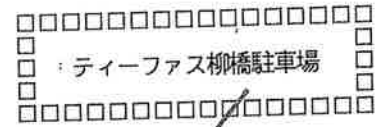 □□□□□□□□□□□□□□□□□
□ □
□ : ティーファス柳橋駐車場 □
□ □
□□□□□□□□□□□□□□□□□